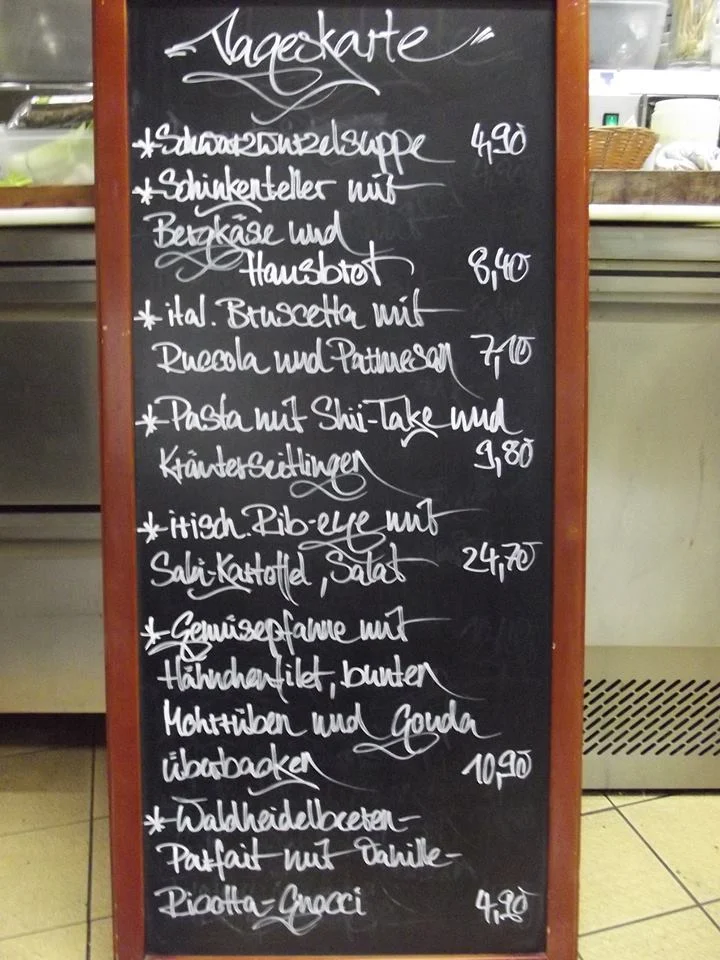 "Tageskarte"
*Schwarzwurzelsuppe 4,90
*Schinkenteller mit
Bergkäse und
Hausbrot 8,40
*ital. Bruscetta mit
Ruccola und Parmesan 7,10
*Pasta mit Shii-Take und
Kräuterseitlingen 9,80
*irisch. Rib-eye mit
Salri-Kartoffel, Salat 24,70
*Gemüsepfanne mit
Hähnchenfilet, bunten
Mohrrüben und Gouda
überbacken 10,90
*Waldheidelbeeren-
Parfait mit Vanille-
Ricotta-Gnocci 4,90